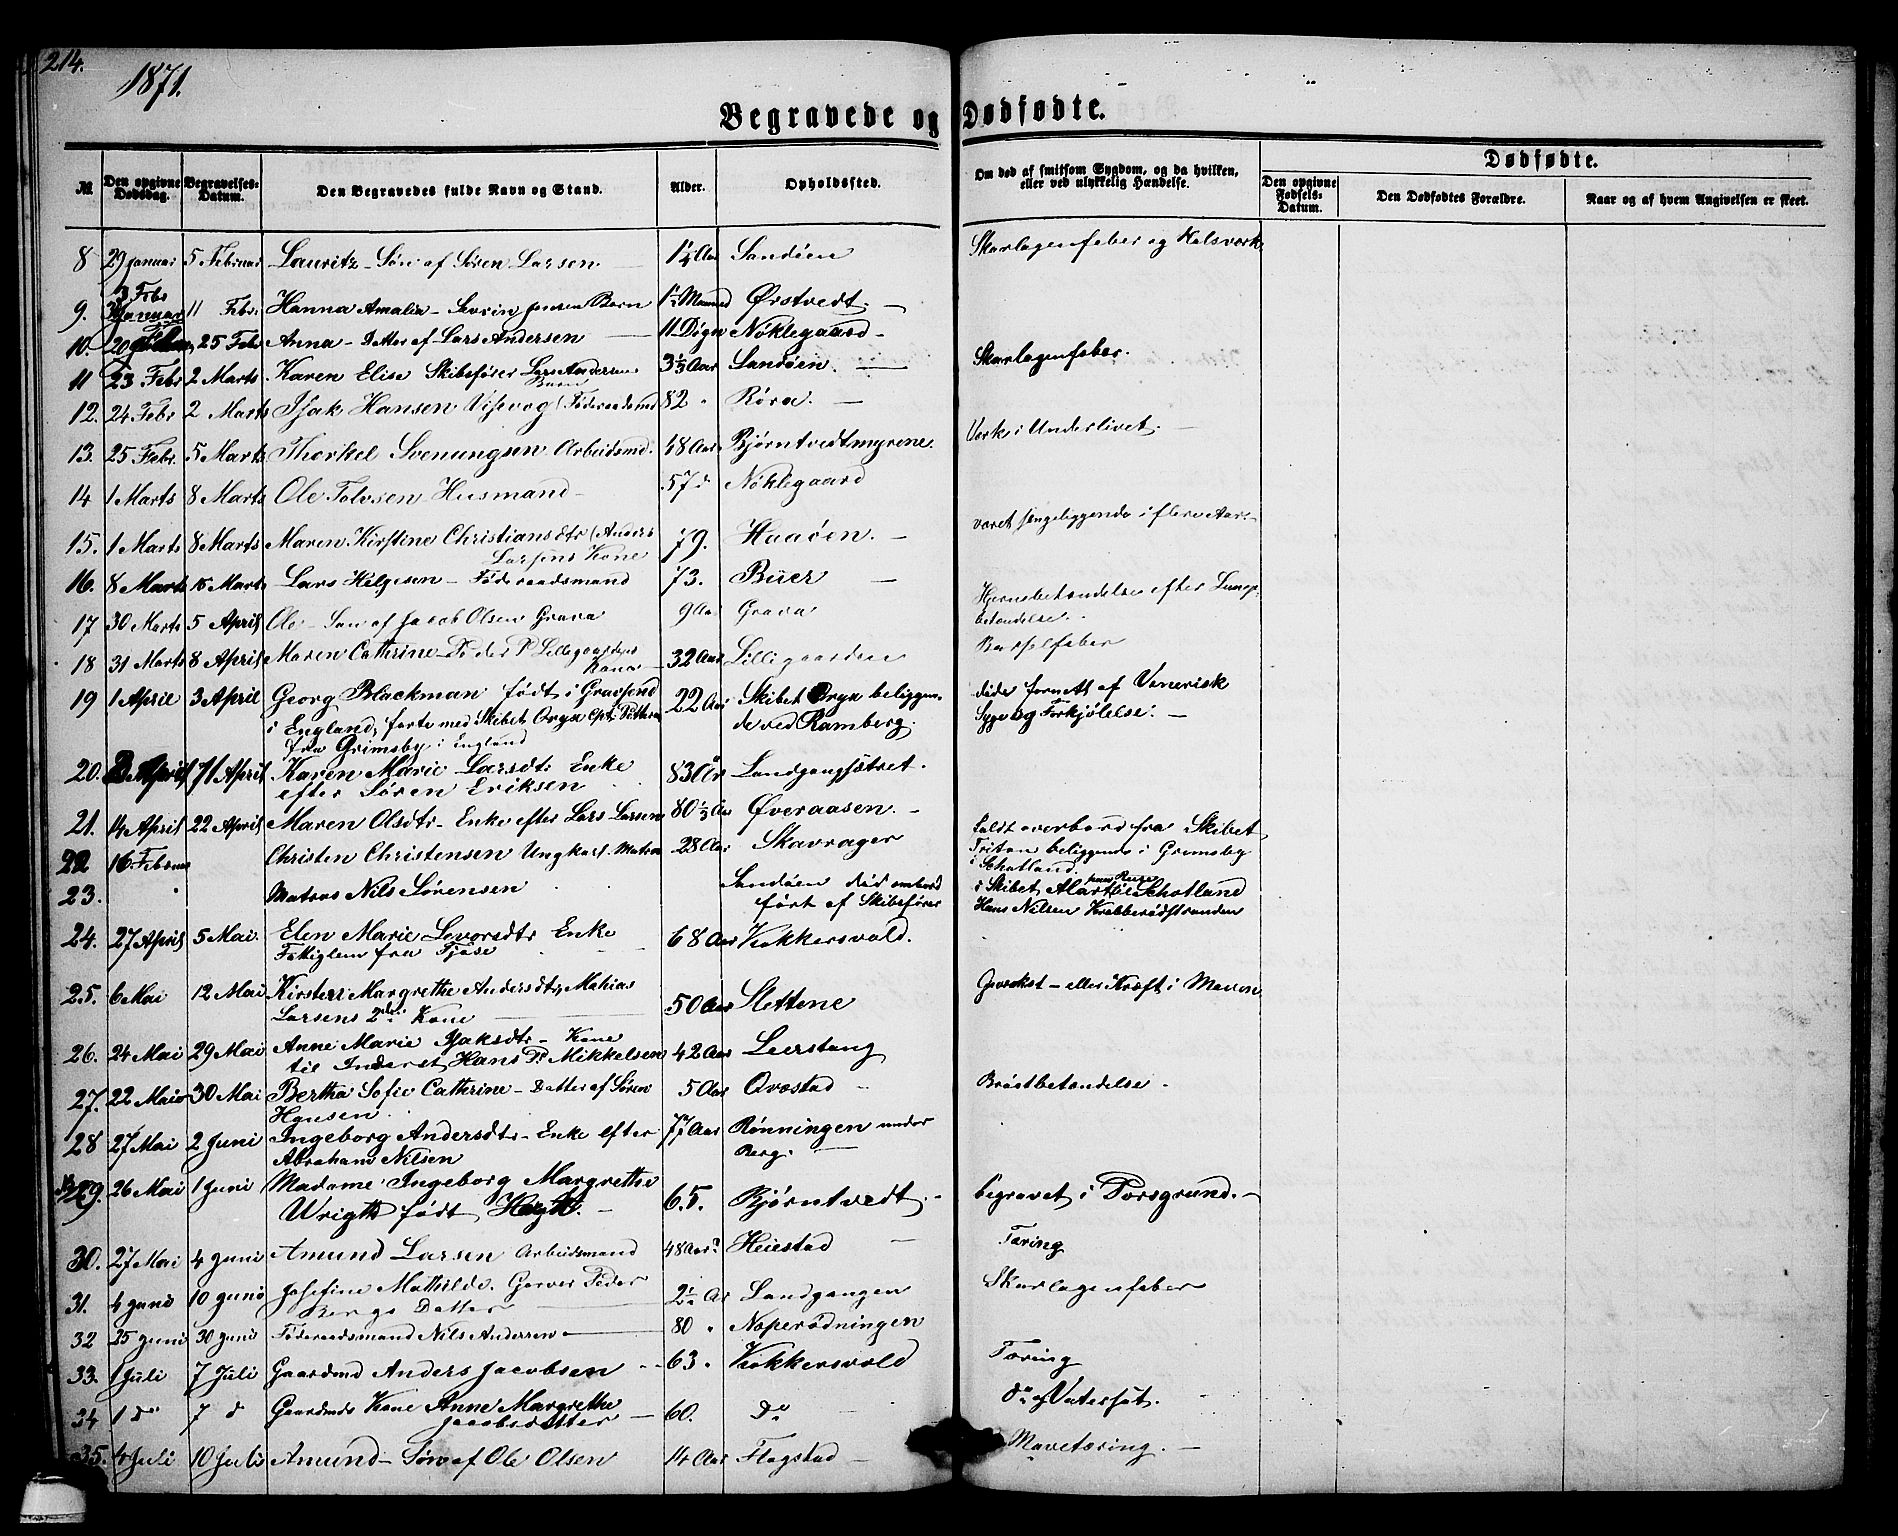 214.
1871.
Begravede og Dødfødte.
№. Den opgivne Dødsdag. Begravelses-Datum. Den Begravedes fulde Navn og Stand. Alder. Opholdssted. Om død af smitsom Sygdom, og da hvilken, eller ved ulykkelig Hændelse. Dødfødte.
Den opgivne Fødsels-Datum. Den Dødfødtes Forældre. Naar og af hvem Angivelsen er skeet.
8 29 Januar 5 Februar Lauritz - Søn af Søren Larsen 1¼ Aar Sandøen Skarlagensfeber og Halsverk
9. 3 Febr 11 Febr. Hanna Amalia - Severin Jensen Barn 1½ Maaned Ørstvedt. -
10. 20 25 Febr Anna - Datter af Lars Andersen 11 Døgn Nøklegaard -
11 23 Febr 2 Marts. Karen Elise Skibsfører Lars Andersens Barn 3½ Aar Sandøen. Skarlagensfeber.
12. 24 Febr 2 Marts Isak Hansen Føderaadsmd 82 " Røra. -
13. 25 Febr. 5 Marts Thorkel Svenungsen Arbeidsmd. 48 Aar. Bjørntvedtmyrene. Verk i Underlivet. -
14 1 Marts 8 Marts Ole Tolvsen Husmand - 57 d Nøklegaard
15. 1 Marts 8 Marts Maren Kirstine Christiansdtr (Anders Larsens Kone 79. Haaøen. - været sengeliggende i flere Aar
16. 8 Marts 15 Marts Lars Helgesen - Føderaadsmand 73. Büer -
17 30 Marts 5 April Ole - Søn af Jacob Olsen Grava 9 Aar Grava Hjernebetændelse efter Lungebetændelse.
18 31 Marts 8 April Maren Cathrine - Peder P. Lillegaardens Kone - 32 Aar Lillegaarden Barselfeber
19 1 April 3 April Georg Blackman født i Gravsend 22 Aar Skibet Oryx beliggen- døde fornemt af Venerisk
i England, farte med Skibet Oryx Cpt. de ved Ramberg. Syge og Forkjølelse. -
fra Grimsby i England
20. April April Karen Marie Larsdtr Enke 83 Aar Landgangsætret.
efter Søren Eriksen
21. 14 April 22 April Maren Olsdtr - Enke efter Lars Larsen 80½ Aar Øveraasen. -
22 16 Februar Christen Christensen Ungkarl. Matros 28 Aar Skavrager faldt overbord fra Skibet
Triton beliggende i Gremsby
i Schotland.
23. " Matros Nils Sørensen Sandøen død ombord i Skibet Schotland
ført af Skibsfører Hans Nilsen Krabberødstranden
24. 27 April 5 Mai. Elen Marie Levorsdtr Enke 68 Aar Kokkersvold.
Fattiglem fra Tjøse
25. 6 Mai 12 Mai Kirsten Margrethe Andersdtr, Mathias 50 Aar Slettene Gevækst - eller Kræft i Maven
Larsens 2den Kone
26. 24 Mai 29 Mai Anne Marie Isaksdtr - Kone 42 Aar Leerstang
til Inderst Hans P. Mikkelsen
27. 22 Mai 30 Mai Bertha Sofie Cathrine - Datter af Søren 5 Aar Ovestad - Brøstbetændelse -
Hansen.
28 27 Mai 2 Juni Ingeborg Andersdtr - Enke efter 77 Aar Rønningen under
Abraham Nilsen Berg.
29. 26 Mai 1 Juni Madame Ingeborg Margrethe 65. Bjørntvedt. - begravet i Porsgrund. -
Wrigth født
30. 27 Mai 4 Juni Amund Larsen Arbeidsmand 48 Aar Heiestad - Tæring
31. 4 Juni 10 Juni Josefine Mathilde. Garver Peder 2½ Ar Landgangen Skarlagensfeber
Bergs Datter
32 25 Juni 30 Juni Føderaadsmand Nils Andersen 80 " Naperødningen
33. 1 Juli 7 Juli Gaardmd Anders Jacobsen 63 " Kokkersvold Tæring
34 1 do 7 d Gaardmds Kone Anne Margrethe 60. Do do Vatersot.
Jacobsdatter -
35. 4 Juli 10 Juli Amund - Søn af Ole Olsen 14 Aar Flogstad - Mavetæring. -